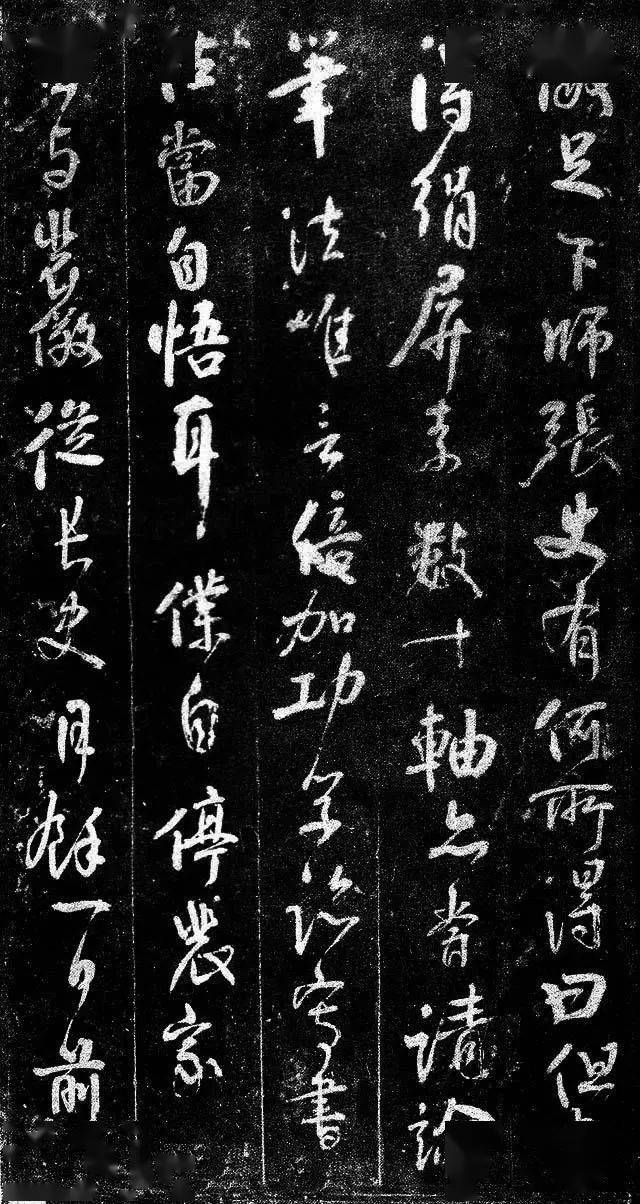 足下師張史有何所得曰但
得絹屏素數十軸亦嘗請論
筆法唯言倍加功學臨寫書
法當自悟耳僕自停裴家
与裴儆從長史月餘一前